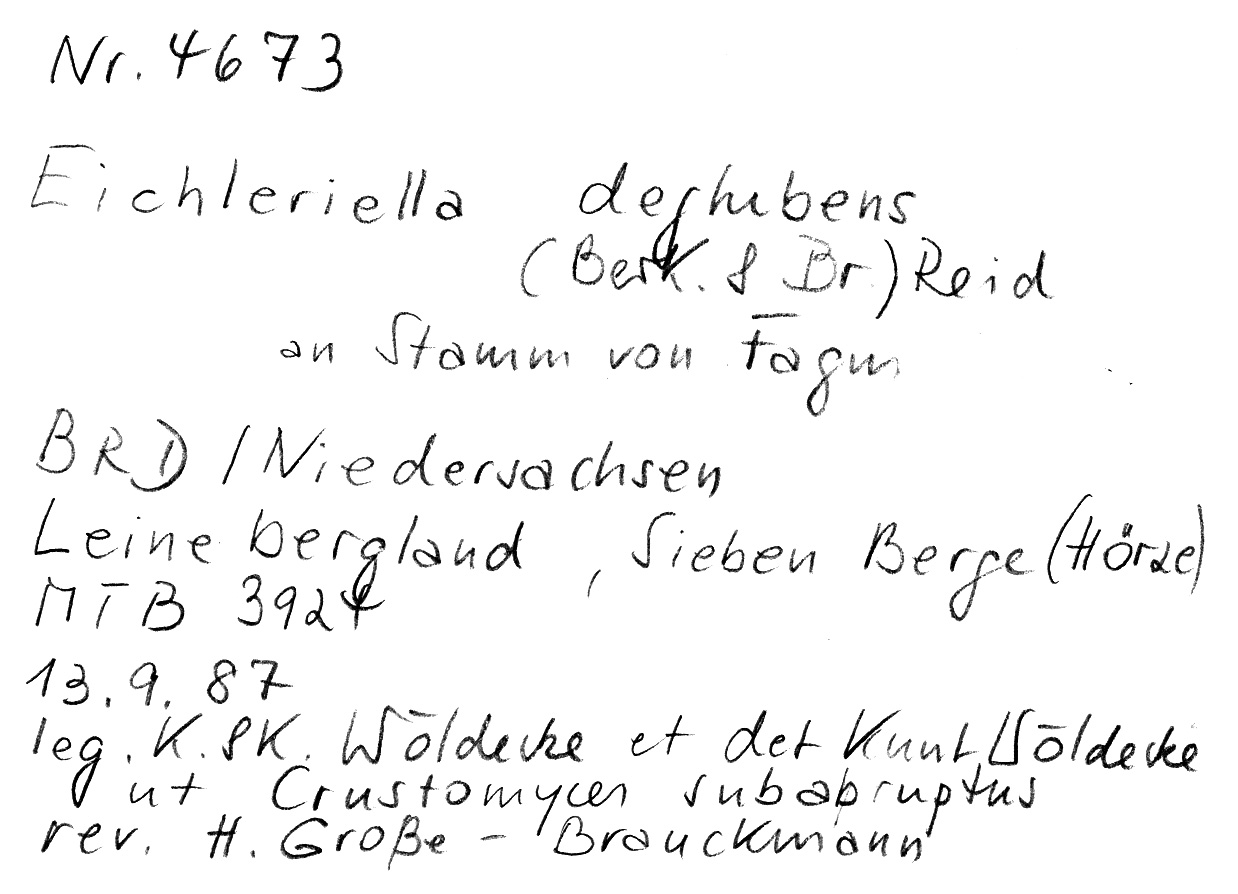 Nr. 4673
Eichleriella deglubens
(Berk. & Br.) Reid
an Stamm von Fagus
BRD / Niedersachsen
Leinebergland, Sieben Berge (Hörze)
MTB 3924
13.9.87
leg. K. & K. Wöldecke et det Knut Wöldecke
ut Crustomyces subabruptus
rev. H. Große - Brauckmann